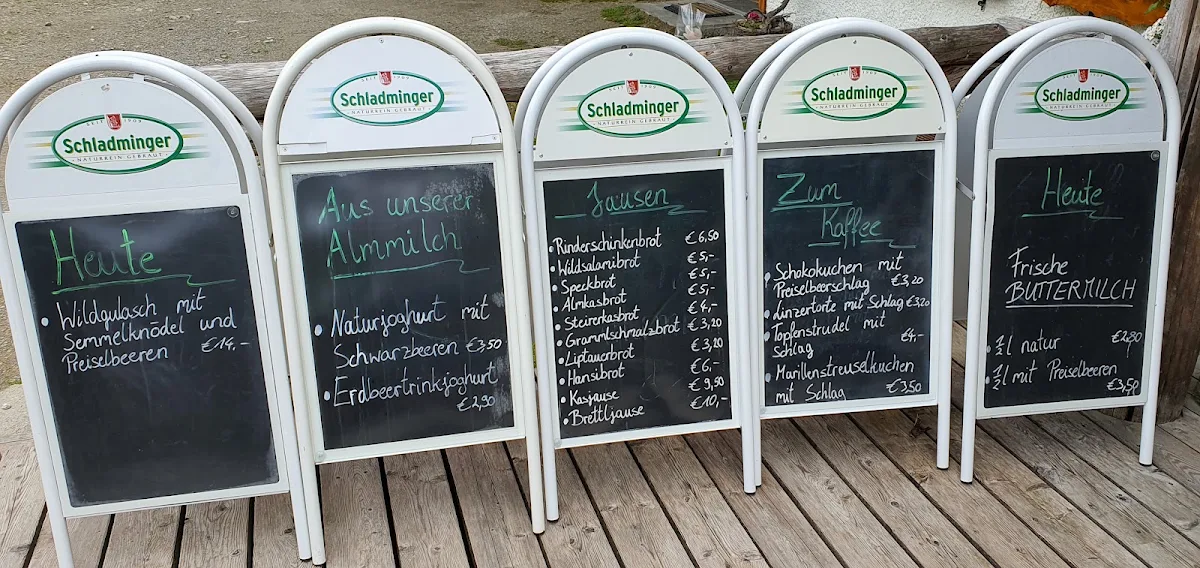 SEIT 1909
Schladminger
NATURREIN GEBRAUT
Heute
• Wildgulasch mit
Semmelknödel und
Preiselbeeren €14,-
SEIT 1909
Schladminger
NATURREIN GEBRAUT
Aus unserer
Almmilch
• Naturjoghurt mit
Schwarzbeeren €3,50
• Erdbeertrinkjoghurt
€2,90
SEIT 1909
Schladminger
NATURREIN GEBRAUT
Jausen
• Rinderschinkenbrot €6,50
• Wildsalamibrot €5,-
• Speckbrot €5,-
• Almkasbrot €5,-
• Steirerkasbrot €4,-
• Grammlschmalzbrot €3,20
• Liptauerbrot €3,20
• Hansibrot €6,-
• Kasjause €9,50
• Brettljause €10,-
SEIT 1909
Schladminger
NATURREIN GEBRAUT
Zum
Kaffee
• Schokokuchen mit
Preiselbeerschlag €3,20
• Linzertorte mit Schlag €3,20
• Topfenstrudel mit
Schlag €4,-
• Marillenstreuselkuchen
mit Schlag €3,50
SEIT 1909
Schladminger
NATURREIN GEBRAUT
Heute
Frische
BUTTERMILCH
• ½ l natur €2,80
• ½ l mit Preiselbeeren
€3,50